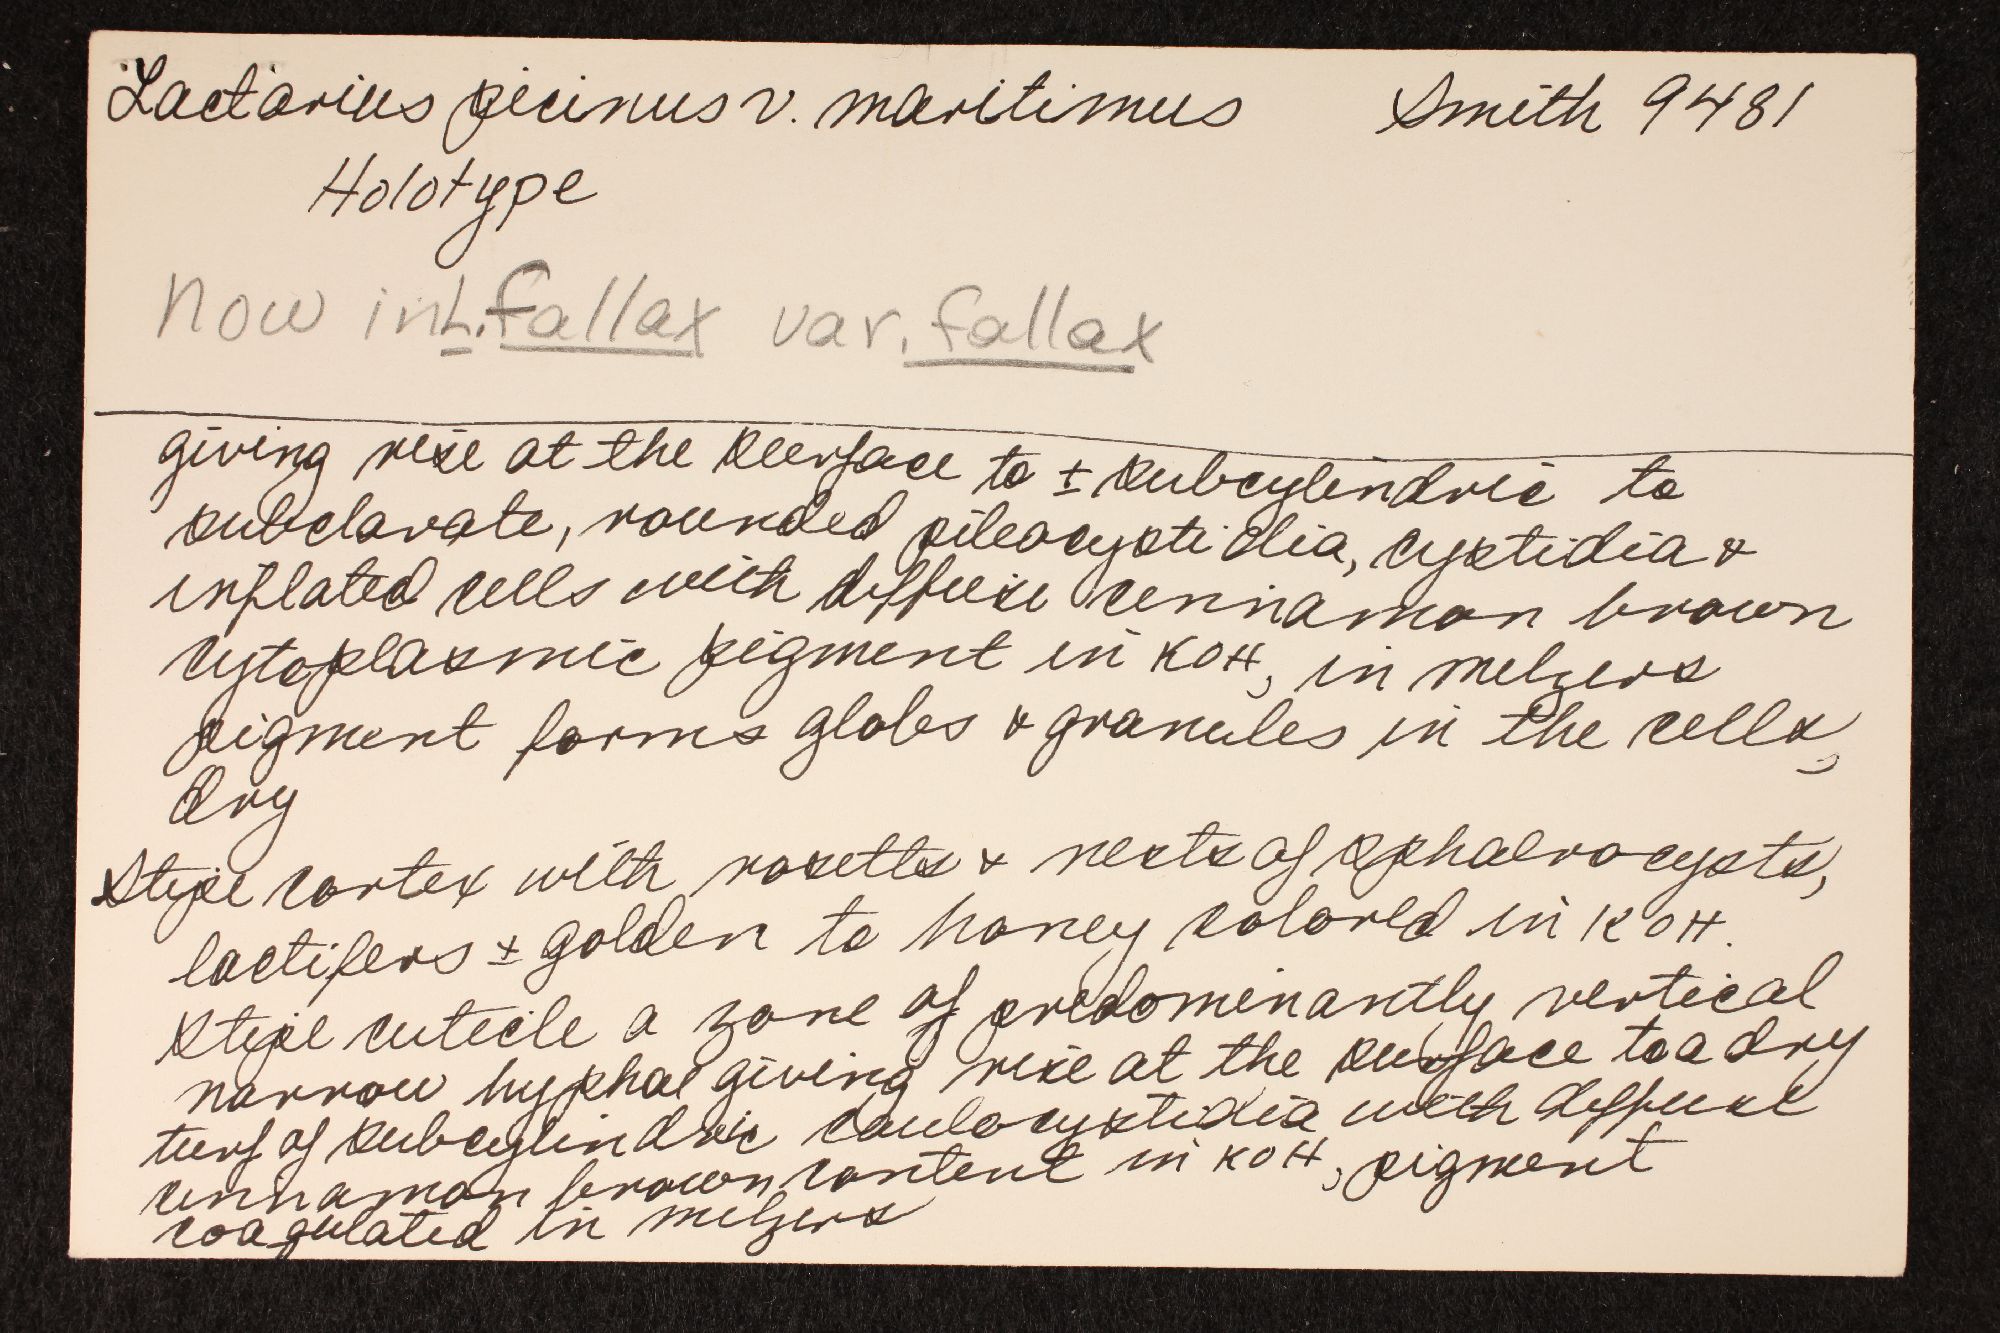 Lactarius picinus v. maritimus Smith 9481
Holotype
Now in L. fallax var. fallax
giving rise at the surface to ± subcylindric to
subclavate, rounded pileocystidia, cystidia &
inflated cells with diffuse cinnamon brown
cytoplasmic pigment in KOH, in melzers
pigment forms globs & granules in the cells,
dry
Stipe cortex with rosetts & nests of sphaerocysts,
lactifers ± golden to honey colored in KOH.
Stipe cuticle a zone of predominantly vertical
narrow hyphae giving rise at the surface to a dry
turf of subcylindric caulocystidia with diffuse
cinnamon brown content in KOH, pigment
coagulated in melzers